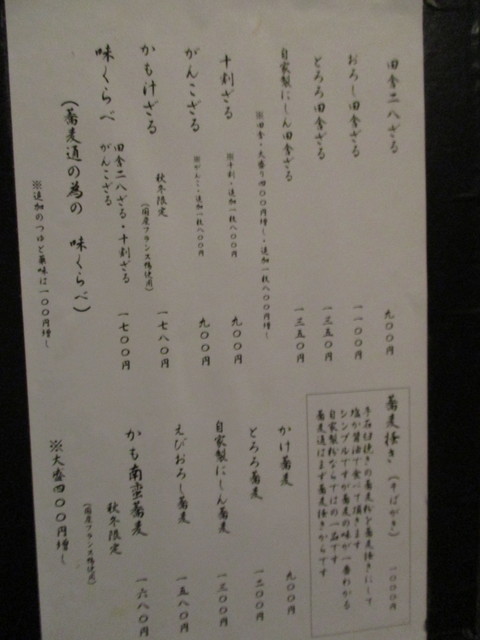 田舎二八ざる 九〇〇円
おろし田舎ざる 一一〇〇円
とろろ田舎ざる 一三五〇円
自家製にしん田舎ざる 一三五〇円
※田舎・大盛り四〇〇円増し・追加一枚八〇〇円増し
十割ざる 九〇〇円
※十割・追加一枚八〇〇円
がんこざる 九〇〇円
※がんこ・追加一枚八〇〇円
かも汁ざる 秋冬限定 一七八〇円
(国産フランス鴨使用)
味くらべ 田舎二八ざる・十割ざる 一七〇〇円
がんこざる
(蕎麦通の為の 味くらべ)
※追加のつほど薬味は一〇〇円増し
蕎麦掻き (そばがき) 一〇〇〇円
手石臼挽きの蕎麦粉を蕎麦掻きにして
塩か醤油で食べて頂きます
シンプルですが蕎麦の味が一番わかる
自家製粉ならではの一品です
蕎麦通はまず蕎麦掻きからです
かけ蕎麦 九〇〇円
とろろ蕎麦 一二〇〇円
自家製にしん蕎麦 一三〇〇円
えびおろし蕎麦 一五八〇円
かも南蛮蕎麦 秋冬限定 一六八〇円
(国産フランス鴨使用)
※大盛四〇〇円増し